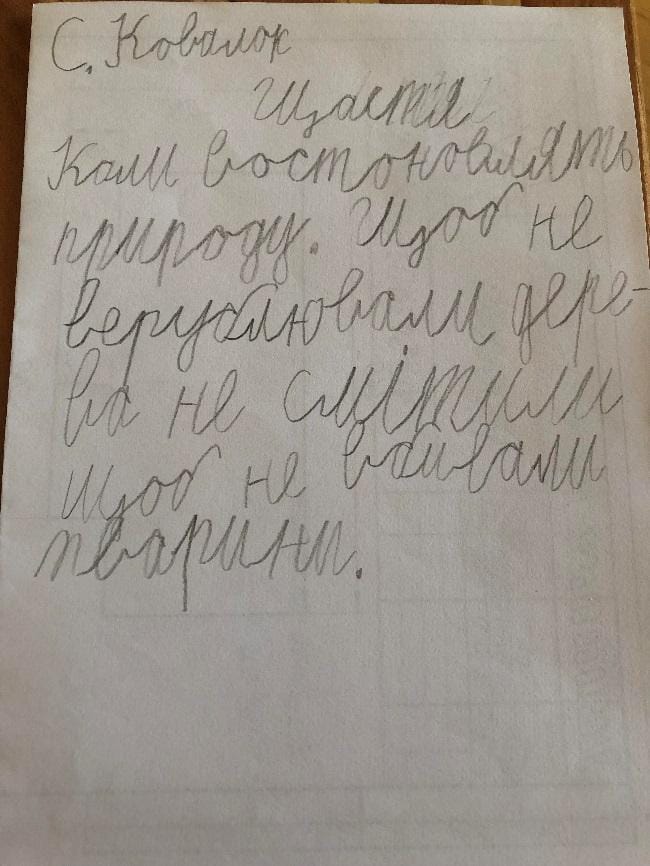 С. Ковалок
Щастя
Коли востоновлять
природу. Щоб не
верублювали дере-
ва не смітили
щоб не вбивали
тварини.